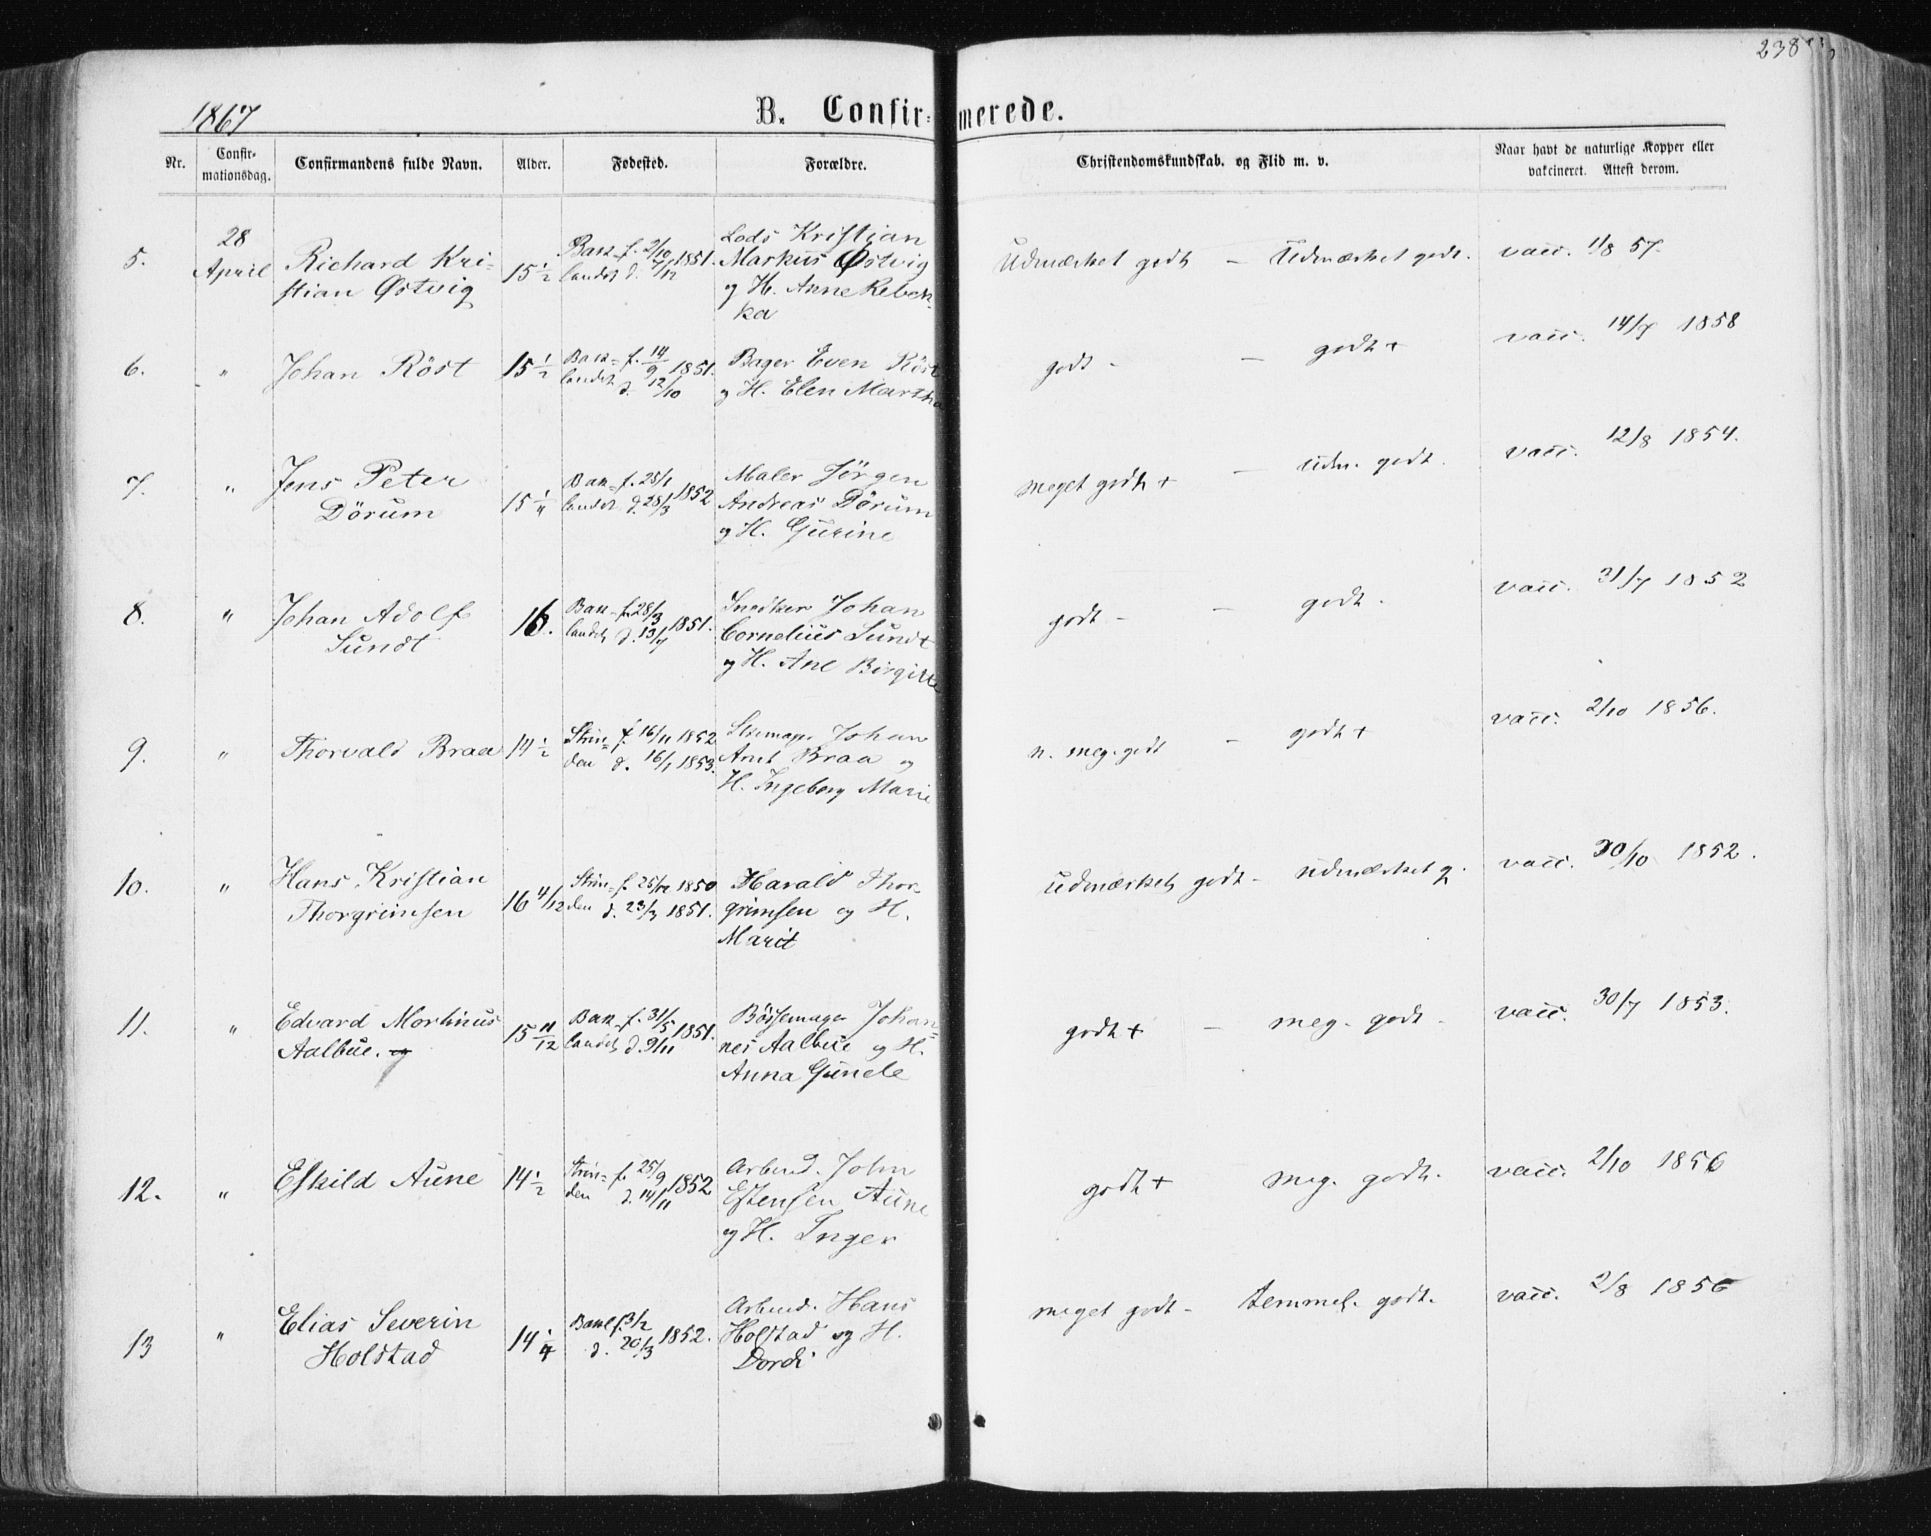 238
1867
B. Confir-merede.
Nr. Confir-mationsdag. Confirmandens fulde Navn. Alder. Fødested. Forældre. Christendomskundskab. og Flid m. v. Naar havt de naturlige Kopper eller vakcineret. Attest derom.
5. 28 April Richard Kri-
stian Østvig
15 1/2
Bak- f. 2/10 1851.
landet d. 7/12
Lods Kristian
Markus Østvig
og H. Anne Rebek-
ka
Udmærket godt - Udmærket godt. vacc. 11/8 57.
6. " Johan Röst 15 1/2
Bak- f. 14/9 1851.
landet d. 12/10
Bager Even Röst
og H. Elen Martha
godt - - godt + vacc. 14/7 1858
7. " Jens Peter
Dörum
15 1/4
Bak- f. 28/1 1852
landet d. 28/3
Maler Jörgen
Andreas Dörum
og H. Gurine
meget godt + - udm. godt. vacc. 12/8 1854.
8. " Johan Adolf
Sundt
16.
Bak- f. 28/3 1851.
landet d. 13/7
Snedker Johan
Cornelius Sundt
og H. Ane Birgitte
godt - - godt. vacc. 31/7 1852
9. " Thorvald Braa 14 1/2
Strin- f. 16/11 1852
den d. 16/1 1853.
Johan
Arnt Braa og
H. Ingeborg Marie
n. meg. godt - godt + vacc. 2/10 1856.
10. " Hans Kristian
Thorgrimsen
16 4/12
Strin- f. 25/12 1850
den d. 23/3 1851.
Harald Thor-
grimsen og H.
Marit
udmærket godt - udmærket g. vacc. 30/10 1852.
11. " Edvard Martinus
Aalbue. og
15 11/12
Bak- f. 31/5 1851.
landet d. 9/11
Bössemager Johan-
nes Aalbue og H.
Anna Gunele
godt + - meg. godt - vacc. 30/7 1853.
12. " Eskild Aune 14 1/2
Strin- f. 25/9 1852
den d. 14/11
Arbmd. John
Estensen Aune
og H. Inger
godt + meg. godt. vacc. 2/10 1856
13 " Elias Severin
Holstad
14 1/4
Bakl f. 3/2 1852.
d. 20/3
Arbmd. Hans
Holstad og H.
Dordi
meget godt - temmel. godt. vacc. 2/8 1856